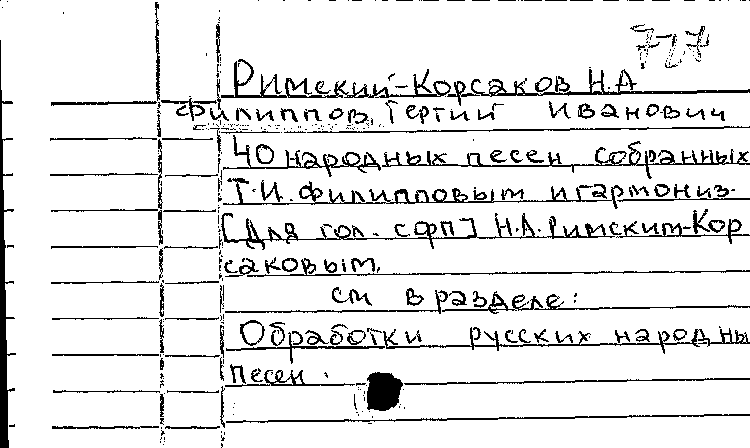 727
Римский-Корсаков Н.А
Филиппов, Тертий Иванович
40 народных песен, собранных
Т.И. Филипповым и гармониз.
[Для гол. с фп] Н.А. Римским-Кор
саковым.
см в разделе:
Обработки русских народны
песен.